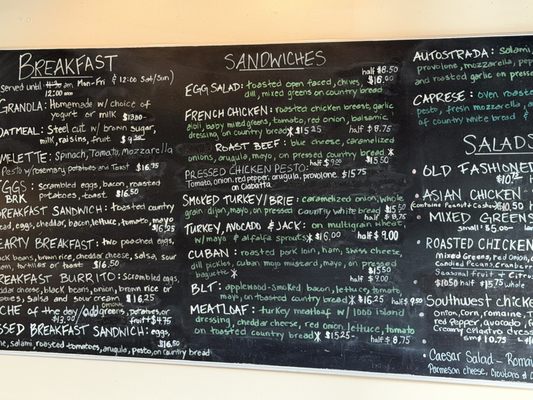 BREAKFAST
Served until 11:30 am Mon-Fri & 12:00 Sat/Sun)
12:00 am
GRANOLA: Homemade w/ choice of
yogurt or milk $13.00
OATMEAL: Steel cut w/ brown sugar,
milk, raisins, fruit $9.25
MELETTE: Spinach, Tomato, mozzarella
Pesto w/ rosemary potatoes and Toast $16.75
EGGS: scrambled eggs, bacon, roasted
BRK potatoes, toast $16.50
BREAKFAST SANDWICH: toasted country
bread, eggs, cheddar, bacon, lettuce, tomato, mayo
$16.25
HEARTY BREAKFAST: two poached eggs,
black beans, brown rice, cheddar cheese, salsa, sour
cream, tortillas or toast $16.50
BREAKFAST BURRITO: Scrambled eggs,
cheddar cheese, black beans, onion, brown rice or
potatoes, salsa and sour cream $16.25
QUICHE of the day/add greens, potatoes, or
fruit +$4.75
PRESSED BREAKFAST SANDWICH: eggs,
salami, roasted tomatoes, arugula, pesto, on country bread
$16.50
SANDWICHES
half $8.50
EGG SALAD: toasted open faced, chives, $16.00
dill, mixed greens on country bread
FRENCH CHICKEN: roasted chicken breast, garlic
aioli, baby mixed greens, tomato, red onion, balsamic
dressing, on country bread * $15.25 half $8.75
ROAST BEEF: blue cheese, caramelized
onions, arugula, mayo, on pressed country bread *
half $9.00 $15.50
PRESSED CHICKEN PESTO:
Tomato, onion, red pepper, arugula, provolone $15.75
on Ciabatta
SMOKED TURKEY/BRIE: caramelized onion, whole
grain dijon, mayo, on pressed country white bread $15.50
half $8.75
TURKEY, AVOCADO & JACK: on multigrain wheat,
w/ mayo & alfalfa sprouts * $16.00 half $9.00
CUBAN: roasted pork loin, ham, swiss cheese,
dill pickles, cuban mojo mustard, mayo, on pressed
baguette * $15.50
half $9.00
BLT: applewood-smoked bacon, lettuce, tomato,
mayo, on toasted country bread * $16.25 half $9.50
MEATLOAF: turkey meatloaf w/ 1000 island
dressing, cheddar cheese, red onion, lettuce, tomato
on toasted country bread * $15.25 half $8.75
AUTOSTRADA: Salami,
provolone, mozzarella, pepe
and roasted garlic on press
CAPRESE: oven roasted
pesto, fresh mozzarella, a
of country white bread
SALADS
• OLD FASHIONED
$10.75
• ASIAN CHICKEN
(contains Peanuts + Cashews) $10.50
• MIXED GREENS
small $5.00
• ROASTED CHICKEN
Mixed Greens, Red Onion,
Candied Pecans, Cranberr
Seasonal fruit +
$10.50 half $15.75 whole
• Southwest chicken
Onion, Corn, romaine, T
red pepper, avocado, f
Creamy cilantro dressi
sm $10.75
• Caesar Salad - Romai
Parmesan cheese, Croutons + C